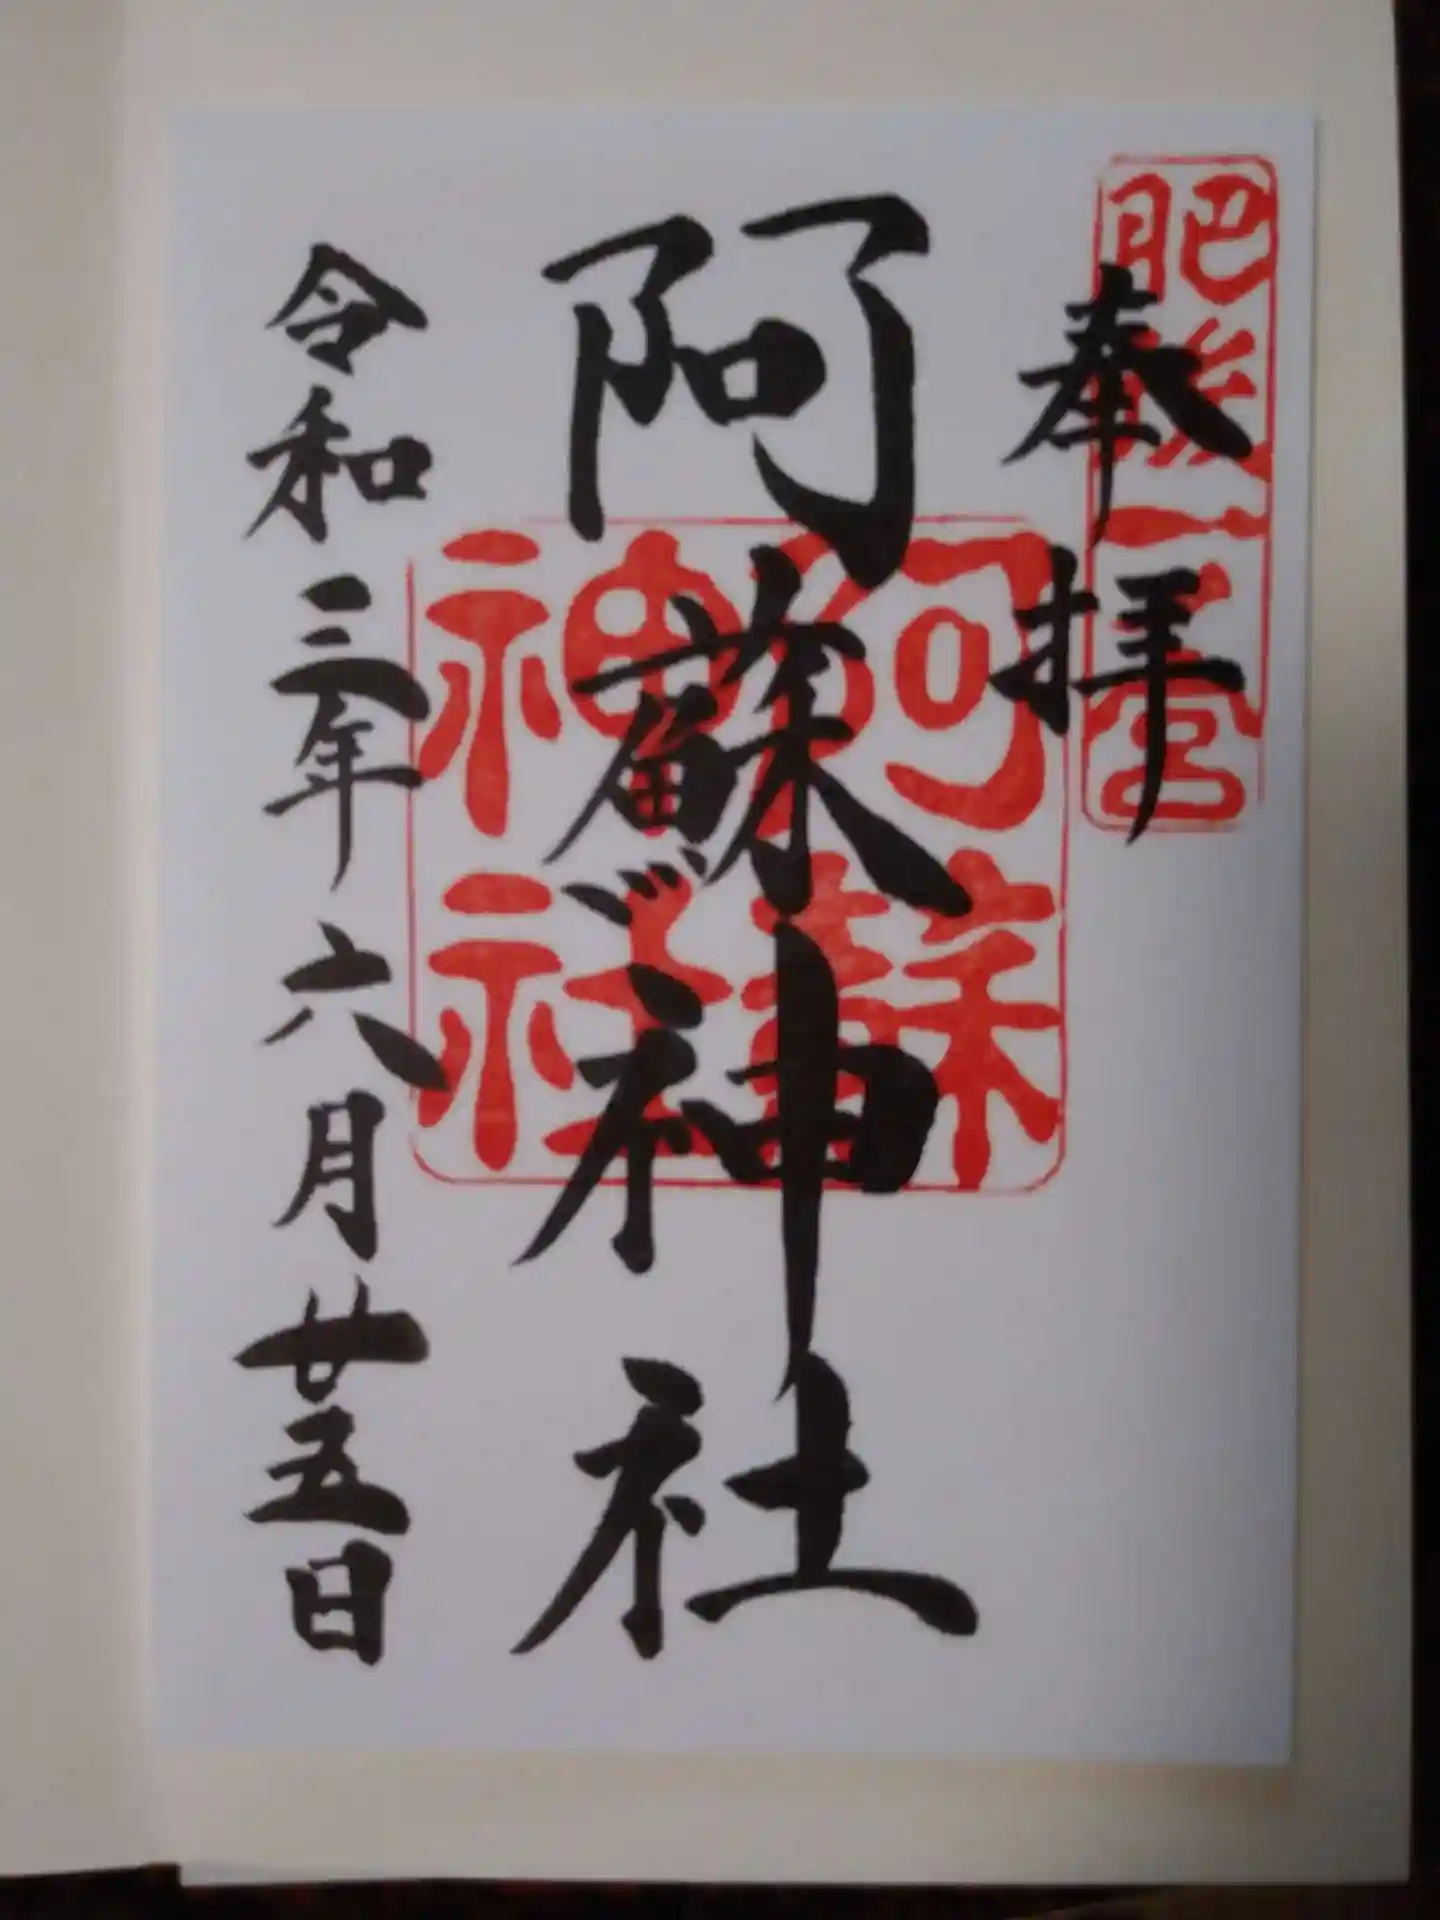 肥後一宮
奉拝
阿蘇神社
阿蘇
神社
令和三年六月廿五日